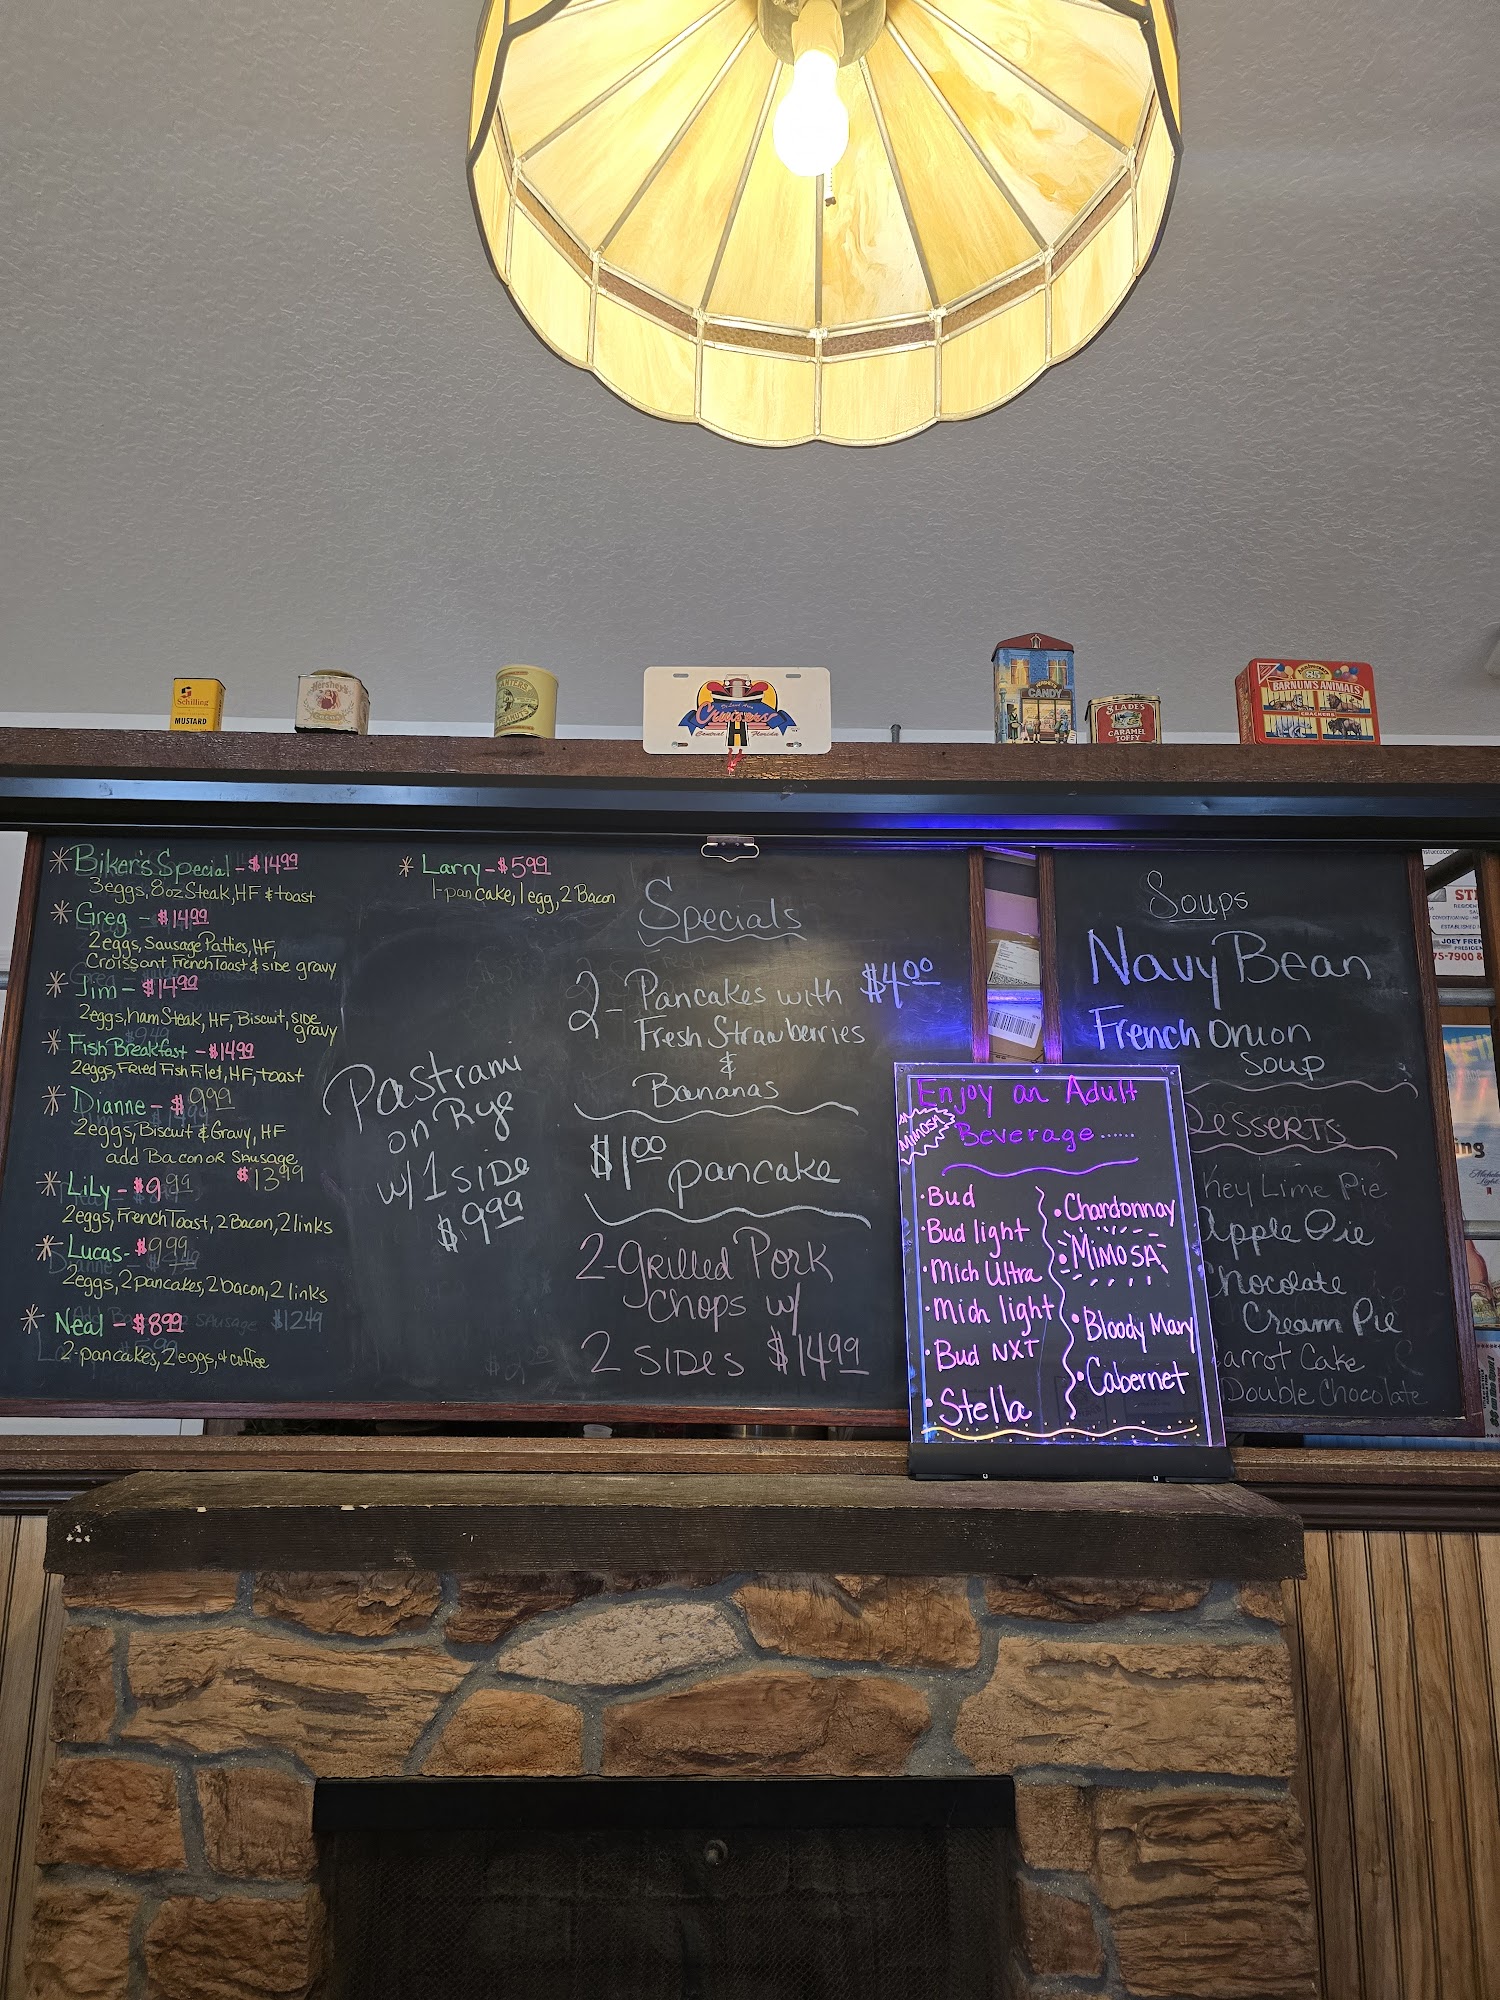 Schilling
MUSTARD
Hershey's
DeLand Area
Cruisers
Central Florida
CANDY
SLADE'S
CARAMEL
TOFFY
Anniversary
85
BARNUM'S ANIMALS
CRACKERS
Biker's Special - $14.99
3eggs, 8oz Steak, HF & toast
Greg - $14.99
2eggs, Sausage Patties, HF,
Croissant French Toast & side gravy
Jim - $14.99
2eggs, Ham Steak, HF, Biscuit, side
gravy
Fish Breakfast - $14.99
2eggs, Fried Fish Filet, HF, toast
Dianne - $9.99
2eggs, Biscuit & Gravy, HF
add Bacon OR Sausage
$13.99
LiLy - $9.99
2eggs, French Toast, 2 Bacon, 2 links
Lucas - $9.99
2eggs, 2 pancakes, 2 bacon, 2 links
Neal - $8.99
2-pancakes, 2 eggs, & coffee
$12.49
Larry - $5.99
1-pancake, 1 egg, 2 Bacon
Pastrami
on Rye
w/ 1 side
$9.99
Specials
2-Pancakes with $4.00
Fresh Strawberries
&
Bananas
$1.00
pancake
2-Grilled Pork
Chops w/
2 SIDES $14.99
Enjoy an Adult
Mimosa
Beverage......
• Bud
• Bud light
• Mich Ultra
• Mich light
• Bud NXT
• Stella
• Chardonnay
• MiMOSA
• Bloody Mary
• Cabernet
Soups
Navy Bean
French Onion
Soup
Desserts
Key Lime Pie
Apple Pie
Chocolate
Cream Pie
Carrot Cake
Double Chocolate
JOEY FREN
75-7900 &